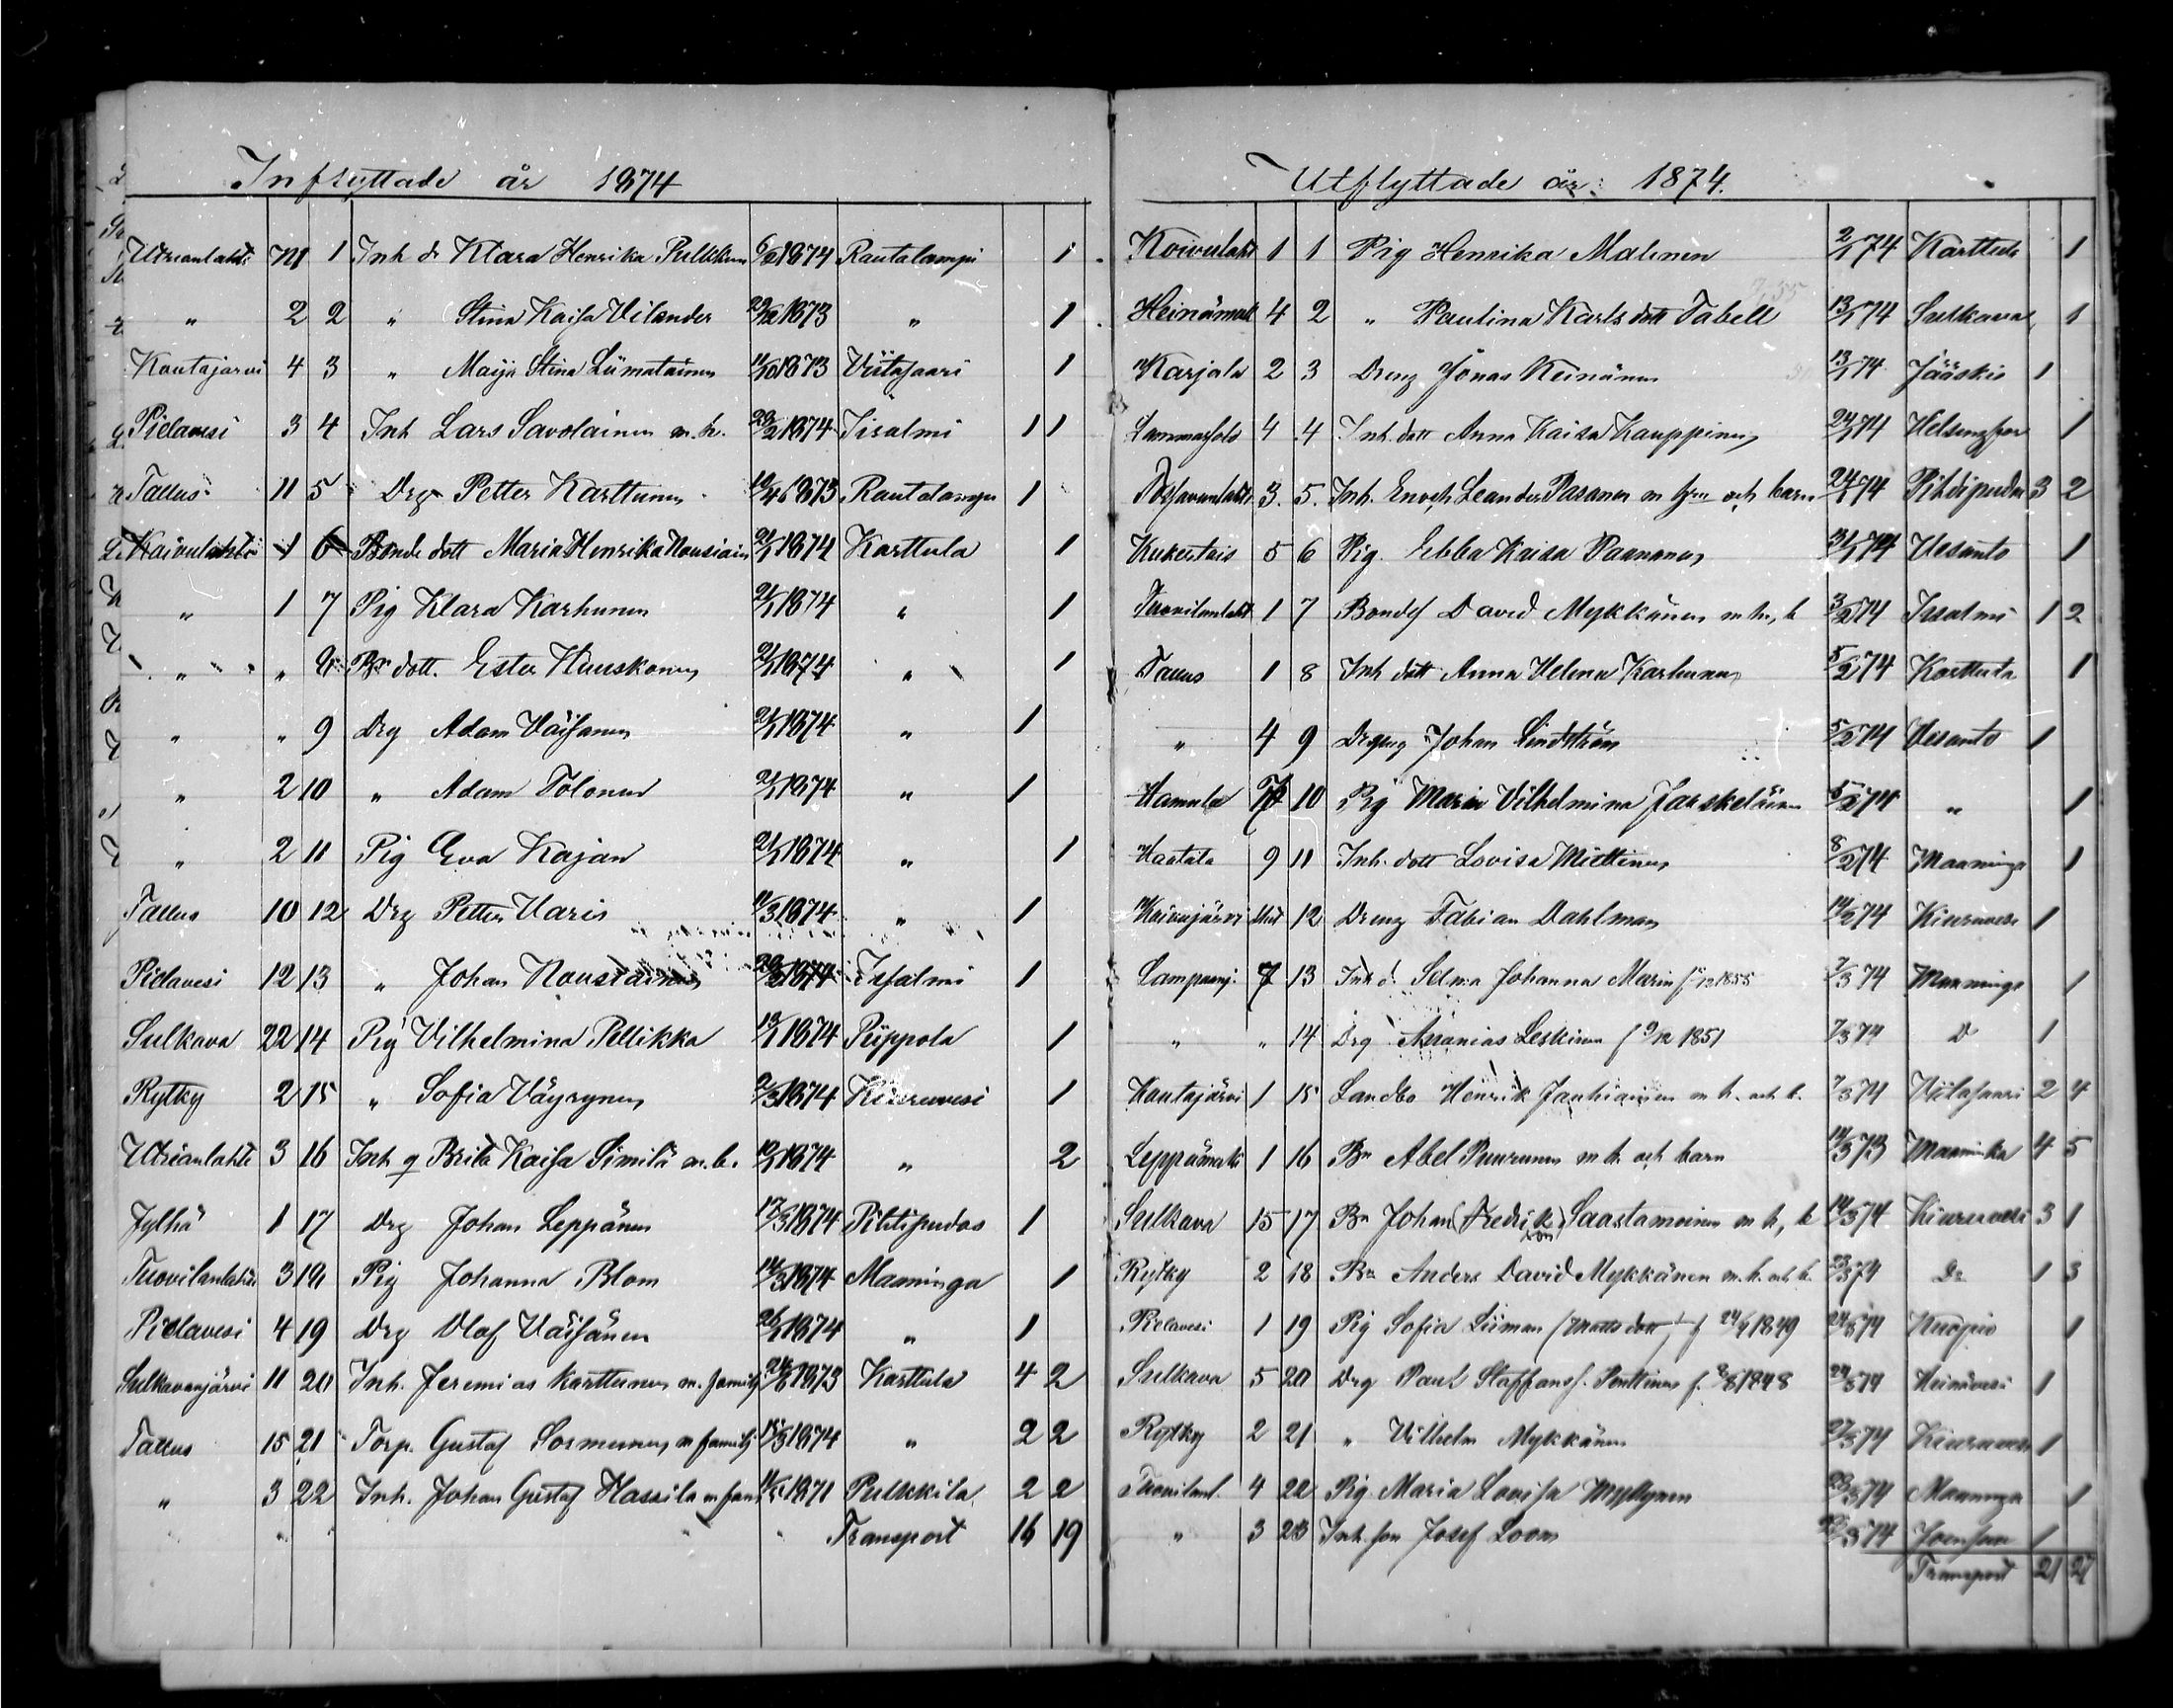 Inflyttade år 1874
Utrianlahti 1 Inh dr Klara Henrika Pulkkinen 1874 Rautalampi 1
" 2 2 " Stina Kaisa Vilander 1873 " 1
Koutajärvi 4 3 " Maija Stina Liimatainen 11/10 1873 Viitasaari 1
Pielavesi 3 4 Inh Lars Savolainen m. h. 1874 Iisalmi 1 1
Tallus 11 5 Drg Petter Karttunen 1873 Rautalampi 1
Koivulahti 1 6 Bonde dott Maria Henrika Nousiain 21/1 1874 Karttula 1
" 1 7 Pig Klara Karhunen 21/1 1874 " 1
" " 8 Bn dott. Ester Huuskonen 21/1 1874 " 1
" " 9 Drg Adam Väisänen 21/1 1874 " 1
" 2 10 " Adam Tolonen 21/1 1874 " 1
" 2 11 Pig Eva Kajan 21/1 1874 " 1
Tallus 10 12 Drg Petter Varis 11/3 1874 " 1
Pielavesi 12 13 " Johan Nousiainen 1874 Iisalmi 1
Sulkava 22 14 Pig Vilhelmina Pellikka 1874 Piippola 1
Rytky 2 15 " Sofia Väyrynen 2/3 1874 Kiuruvesi 1
Utrianlahti 3 16 Inh Brita Kaisa Similä m. b. 1874 " 2
Jylhä 1 17 Drg Johan Leppänen 17/3 1874 Pihtipudas 1
Tuovilanlahti 3 18 Pig Johanna Blom 14/3 1874 Maaninga 1
Pielavesi 4 19 Drg Olof Väisänen 26/1 1874 " 1
Sulkavanjärvi 11 20 Inh. Jeremias Karttunen m. familj 1873 Karttula 4 2
Tallus 15 21 Torp. Gustaf Sormunen m familj 15/3 1874 " 2 2
" 3 22 Inh. Johan Gustaf Hassila m fam 1871 Pulkkila 2 2
Transport 16 19
Utflyttade år: 1874.
Koivulaht 1 1 Pig Henrika Malinen 2/1 74 Karttula 1
Heinämäk 4 2 " Paulina Karlsdott Tabell 13/1 74 Sulkava 1
Karjala 2 3 Dreng Jonas Keinänen 13/1 74 Jääskis 1
Lammassalo 4 4 Inh. dott Anna Kaisa Kauppinen 24/1 74 Helsingfor 1
3. 5. Inh. Enoch Leander Pasanen m hu och barn 24/1 74 Pihtipudas 3 2
5 6 Pig. Ebba Kaisa Paananen 31/1 74 Vesanto 1
Tuovilanlaht 1 7 Bondes David Mykkänen m h., b 3/2 74 Iisalmi 1 2
Tallus 1 8 Inh dott Anna Helena Karhunen 5/2 74 Karttula 1
" 4 9 Dreng Johan Lindström 5/2 74 Vesanto 1
Hamula 10 Pig Maria Vilhelmina Jääskeläinen 5/2 74 " 1
Haatala 9 11 Inh. dott Lovisa Miettinen 8/2 74 Maaninga 1
12 Dreng Fabian Dahlman 14/2 74 Kiuruvesi 1
Lampaanj. 7 13 Inh d. Selma Johanna Marin 1855 7/3 74 Maaninga 1
" " 14 Drg Ananias Leskinen f 9/12 1851 7/3 74 D 1
Koutajärvi 1 15 Landbo Henrik Jauhiainen m h. och b. 7/3 74 Viitasaari 2 4
Leppämäki 1 16 Bn Abel Puurunen m h. och barn 14/3 73 Maaninka 4 5
Sulkava 15 17 Bn Johan (Fredrikson) Saastamoinen m h, b 14/3 74 Kiuruvesi 3 1
Rytky 2 18 Bn Anders David Mykkänen m. h. och b. 23/3 74 Do 1 3
Pielavesi 1 19 Pig Sofia Liiman (Mattsdott) f 1849 24/3 74 Kuopio 1
Sulkava 5 20 Drg Paul Staffanss. Penttinen f. 1848 24/3 74 Heinävesi 1
Rytky 2 21 " Vilhelm Mykkänen 27/3 74 Kiuruvesi 1
Tuovilanl. 4 22 Pig Maria Lovisa Myllynen 28/3 74 Maaninga 1
" 3 23 Inh. son Josef Loom 74 Joensuu 1
Transport 21 27